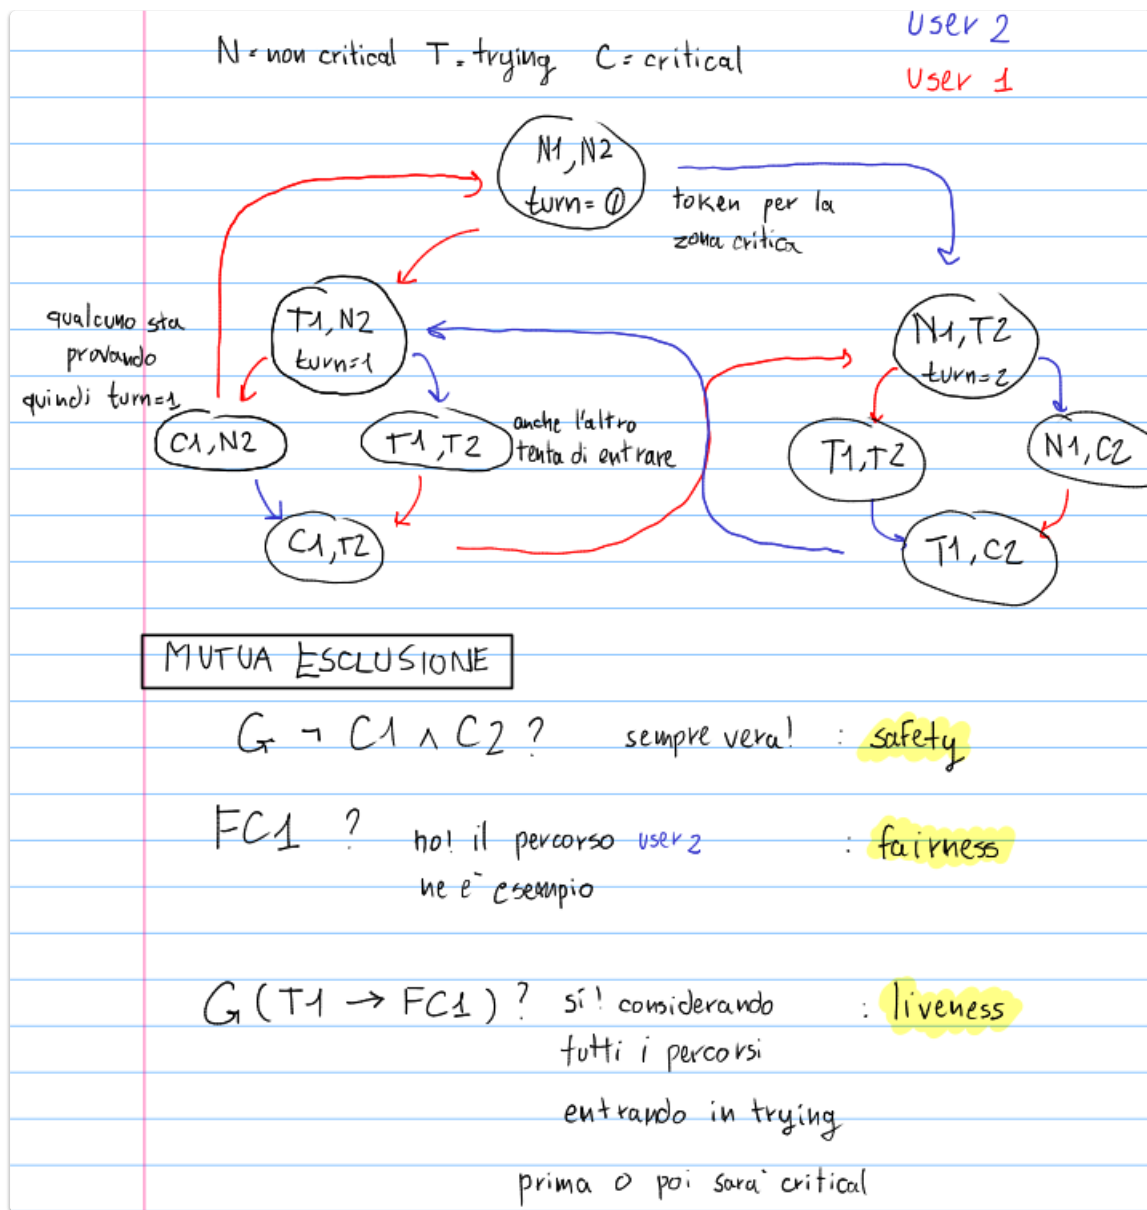 User 2
N = non critical T = trying C = critical
User 1
N1, N2
turn = 0
token per la
zona critica
qualcuno sta
provando
quindi turn=1
T1, N2
turn=1
N1, T2
turn=2
C1, N2
T1, T2
anche l'altro
tenta di entrare
T1, T2
N1, C2
C1, T2
T1, C2
MUTUA ESCLUSIONE
G ¬ C1 ∧ C2 ? sempre vera! : safety
FC1 ? no! il percorso user 2 : fairness
ne è esempio
G (T1 → FC1) ? sí! considerando : liveness
tutti i percorsi
entrando in trying
prima o poi sarà critical